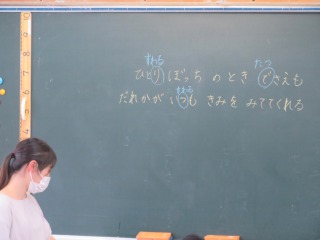 すわる たつ
ひとりぼっち のとき でさえも
すわる
だれかが いつも きみを みててくれる